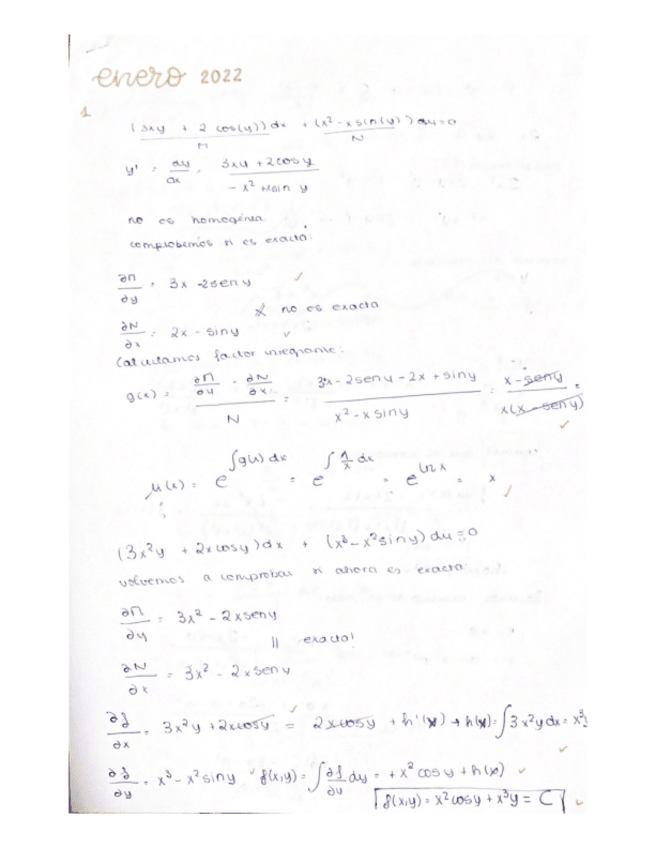 enero 2022
1
(3xy + 2 cos(y)) dx + (x² - x sin(y)) dy = 0
M N
y' = dy/dx = (3xy + 2cosy)/(-x² + xsin y)
no es homogénea
comprobemos si es exacta:
∂M/∂y = 3x - 2seny ✓
≠ no es exacta
∂N/∂x = 2x - siny ✓
Calculamos factor integrante:
g(x) = (∂M/∂y - ∂N/∂x)/N = (3x - 2seny - 2x + siny)/(x² - x siny) = (x - seny)/(x(x - seny)) =
μ(x) = e^∫g(x) dx = e^∫1/x dx = e^ln x = x ✓
(3x²y + 2xcosy) dx + (x³ - x²siny) dy = 0
volvemos a comprobar si ahora es exacta:
∂M/∂y = 3x² - 2xseny
|| exacta!
∂N/∂x = 3x² - 2xseny
∂f/∂x = 3x²y + 2xcosy = 2xcosy + h'(x) → h(x) = ∫3x²y dx = x³y
∂f/∂y = x³ - x²siny ✓ f(x,y) = ∫∂f/∂y dy = + x² cosy + h(x) ✓
f(x,y) = x²cosy + x³y = C ✓